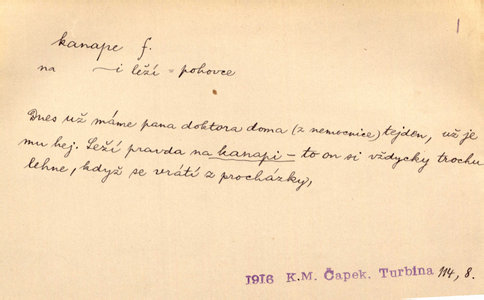 kanape f.
na —i leží = pohovce
Dnes už máme pana doktora doma (z nemocnice) tejden, už je
mu hej. Leží pravda na kanapi – to on si vždycky trochu
lehne, když se vrátí z procházky,
1916 K.M. Čapek. Turbina 114, 8.